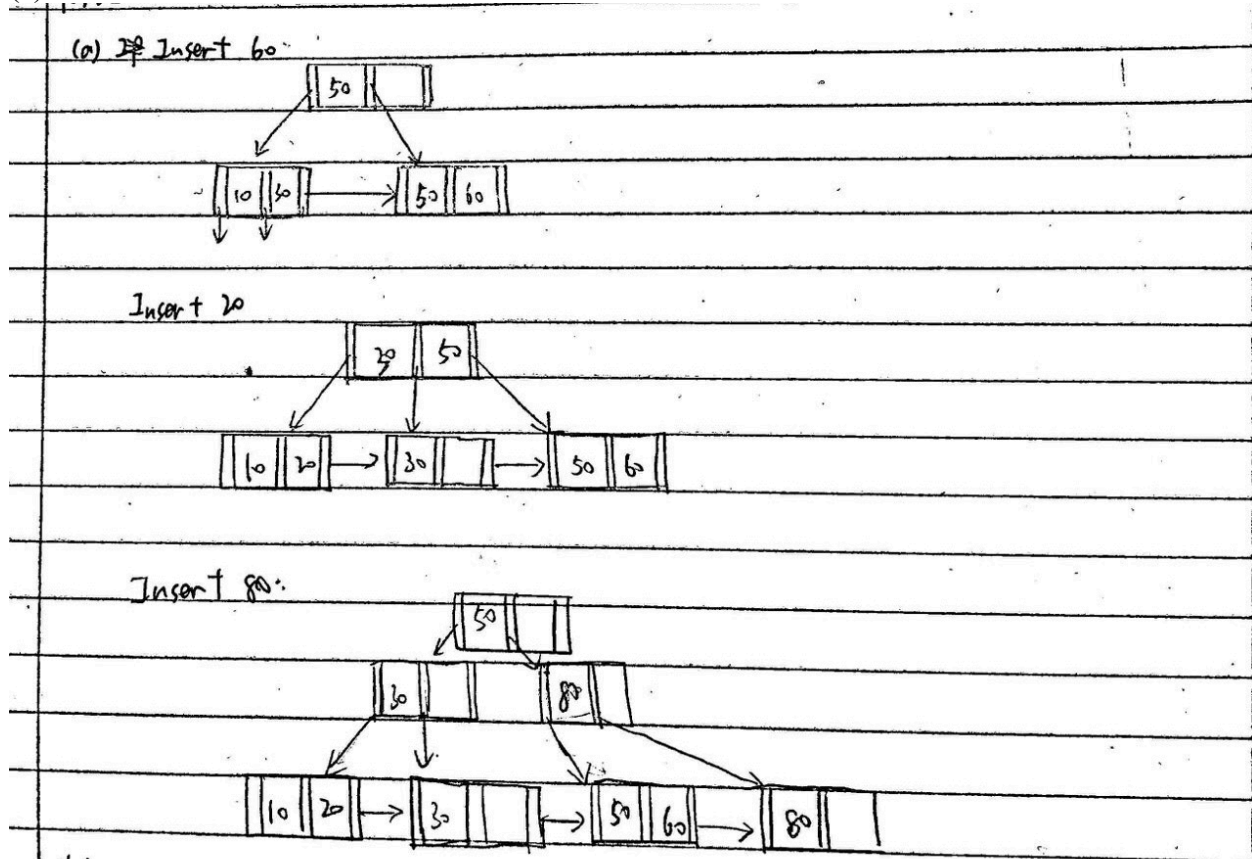 (a) Insert 60:
50
10 30 50 60
Insert 20
30 50
10 20 30 50 60
Insert 80:
50
30 80
10 20 30 50 60 80